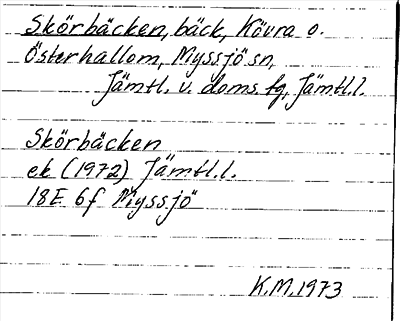 Skörbäcken, bäck, Kövra o.
Österhallom, Myssjö sn,
Jämtl. v. doms. fg, Jämtl.l.
Skörbäcken
ek (1972) Jämtl.l.
18E 6f Myssjö
K.M. 1973